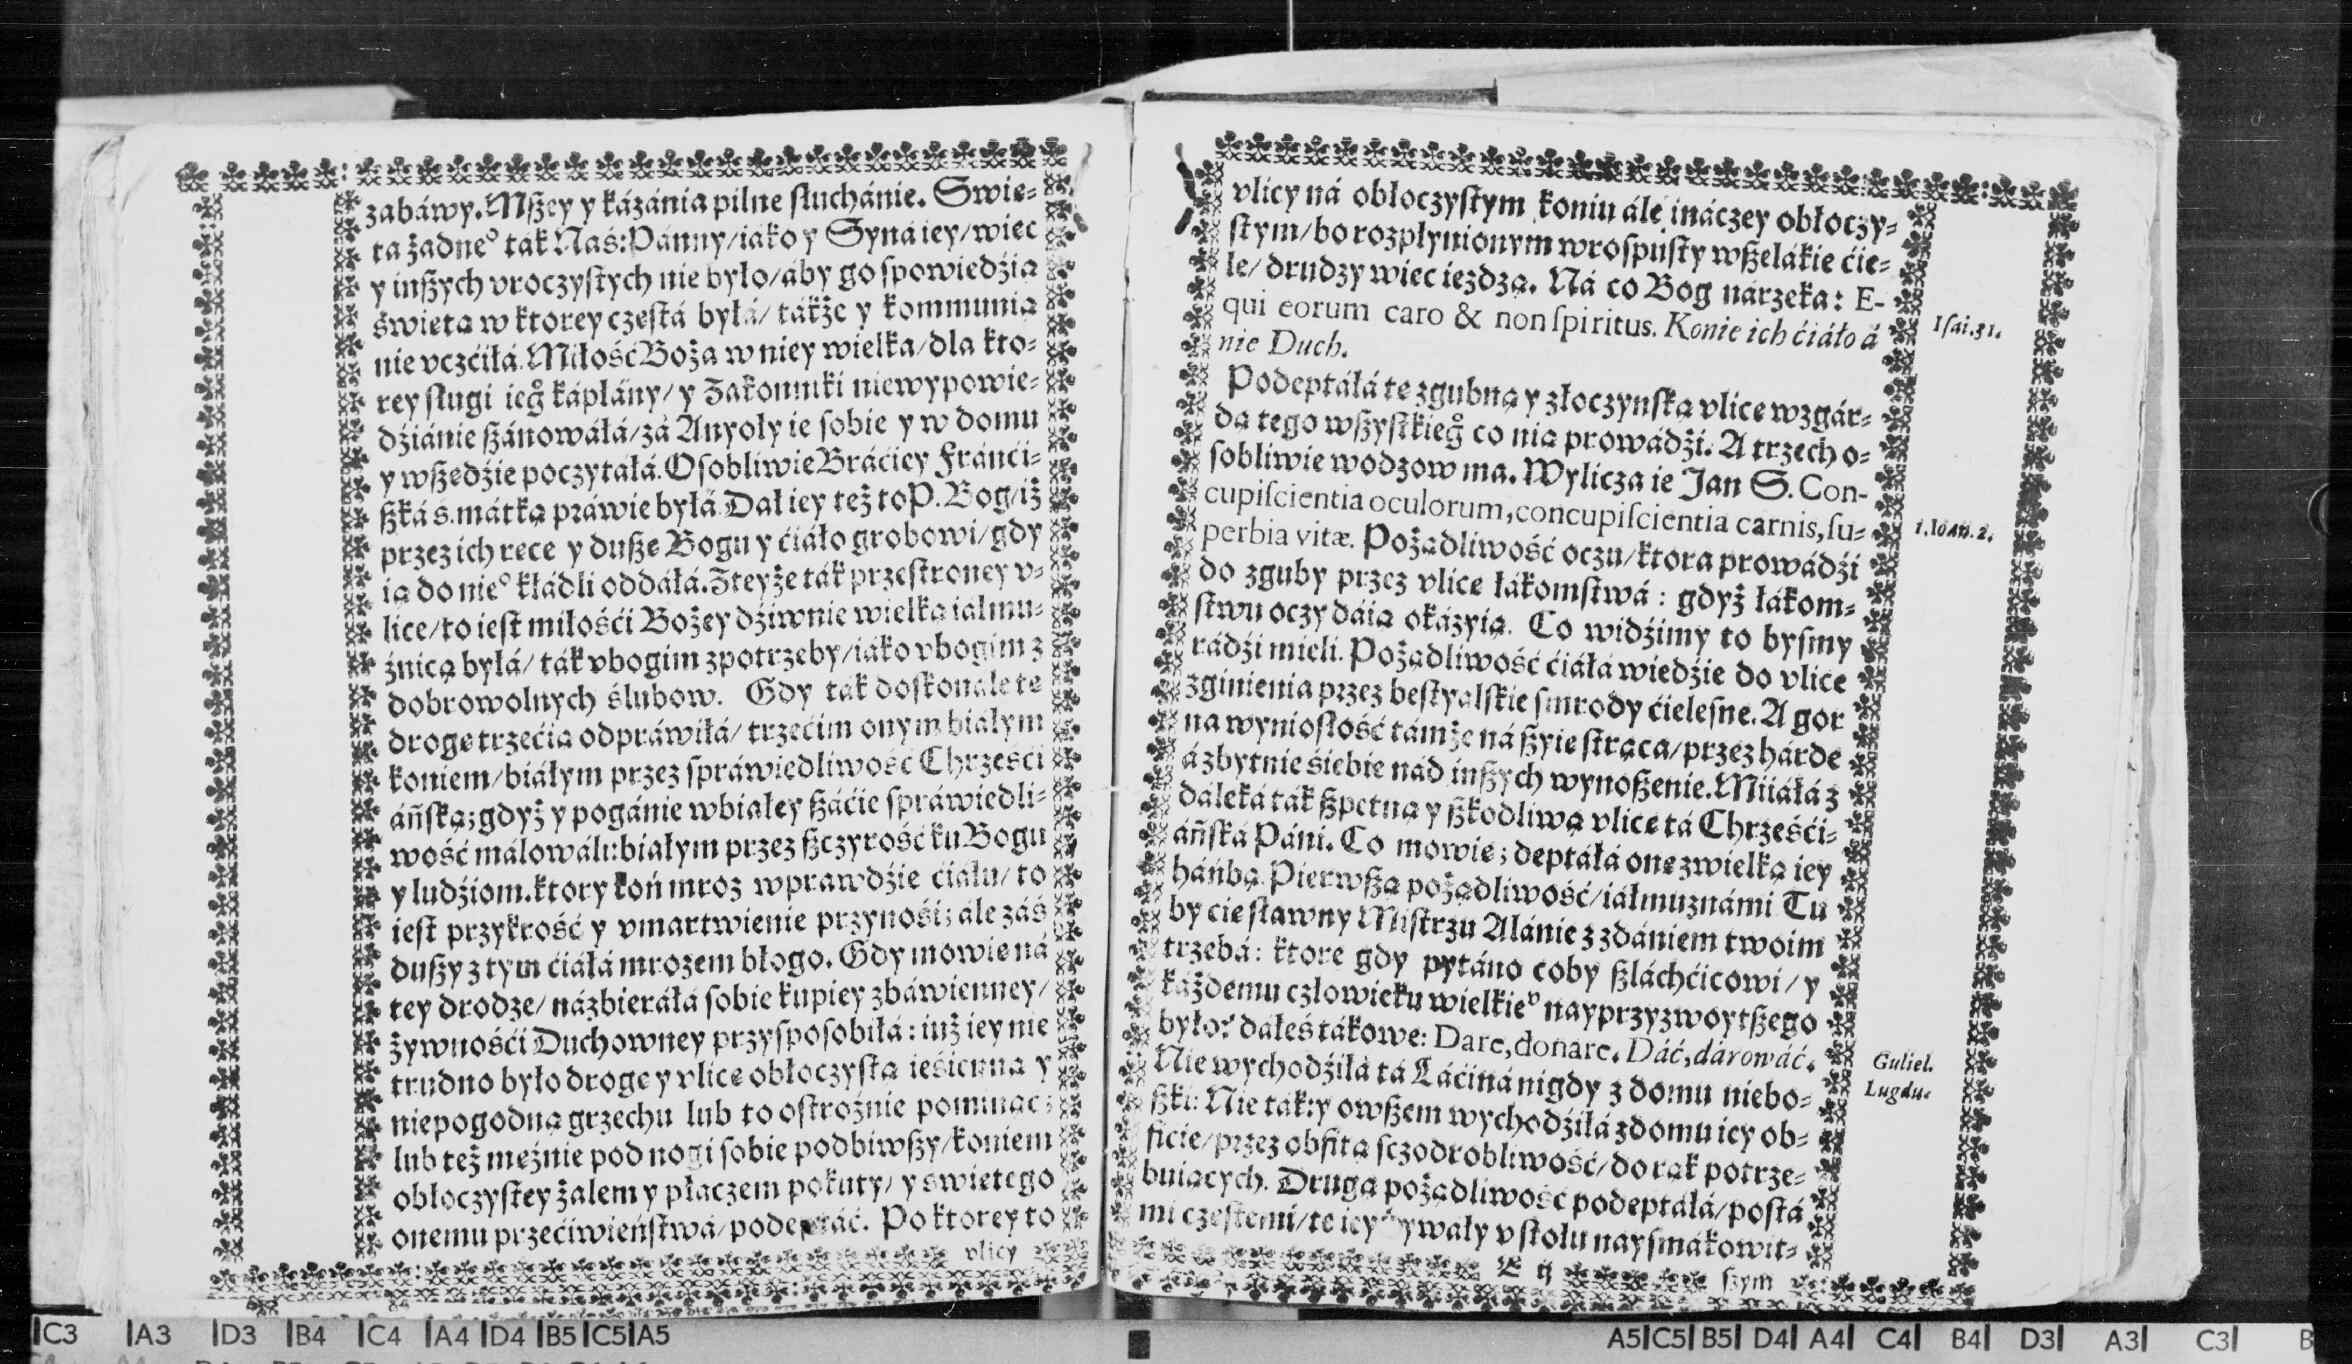 zabáwy. Mßey y kázánia pilne słuchánie. Swie-
ta żadneº ták Naś: Pánny/iáko y Syná iey/wiec
y inßych vroczystych nie było/áby go spowiedźia
świeta w ktorey czestá byłá/ tákże y kommunia
nie vczćiłá. Miłość Boża w niey wielka/dla kto-
rey sługi ieg̊ kápłány/ y Zakonniki niewypowie-
dźiánie ßánowáłá/zá Anyoły ie sobie y w domu
y wßedźie poczytáłá. Osobliwie Bráćiey Fránći-
ßká s. mátką práwie byłá. Dał iey też to P. Bog/iż
przez ich rece y duße Bogu y ćiáło grobowi/gdy
ią do nieº kłádli oddáłá. Z teyże ták przestroney v-
lice/to iest miłośći Bożey dźiwnie wielką iáłmu-
żnicą byłá/ ták vbogim z potrzeby/iáko vbogim z
dobrowolnych ślubow. Gdy ták doskonale te
droge trzećią odpráwiłá/ trzećim onym białym
koniem/biáłym przez spráwiedliwość Chrześći
áńską; gdyż y pogánie w białey ßáćie spráwiedli-
wość málowáli: białym przez ßczyrość ku Bogu
y ludźiom. ktory koń mroz wprawdźie ćiáłu/ to
iest przykrość y vmartwienie przynośi; ále záś
dußy z tym ćiáłá mrozem błogo. Gdy mowie ná
tey drodze/ názbieráłá sobie kupiey zbáwienney/
żywnośći Duchowney przysposobiłá: iuż iey nie
trudno było droge y vlice obłoczystą ieśienną y
niepogodną grzechu lub to ostrożnie pominąć;
lub też meżnie pod nogi sobie podbiwßy/koniem
obłoczystey żalem y płaczem pokuty/ y swietego
onemu przećiwieństwá/podeptáć. Po ktorey to
vlicy
vlicy ná obłoczystym koniu ále ináczey obłoczy-
stym/bo rozpłynionym w rospusty wßelákie ćie-
le/ drudzy wiec ieżdzą. Ná co Bog nárzeka: E-
qui eorum caro & non spiritus. Konie ich ćiáło á
nie Duch.
Isai. 31.
Podeptáłá te zgubną y złoczynską vlice wzgár-
dą tego wßystkieg̊ co nią prowádźi. A trzech o-
sobliwie wodzow ma. Wylicza ie Jan S. Con-
cupiscientia oculorum, concupiscientia carnis, su-
perbia vitæ. Pożądliwość oczu/ktora prowádźi
1. Ioan. 2.
do zguby przez vlice łákomstwá: gdyż łákom-
stwu oczy dáią okázyią. Co widźimy to bysmy
rádźi mieli. Pożądliwość ćiáłá wiedźie do vlice
zginienia przez bestyalskie smrody ćielesne. A gor
na wyniosłość támże ná ßyie strąca/przez hárde
á zbytnie śiebie nád inßych wynoßenie. Miiáłá z
dáleká ták ßpetną y ßkodliwą vlice tá Chrześći-
áńska Páni. Co mowie; deptáłá one z wielką iey
háńbą. Pierwßą pożądliwość/iáłmuznámi Tu
by cie sławny Mistrzu Alánie z zdániem twoim
trzebá: ktore gdy pytáno coby ßláchćicowi/ y
káżdemu człowieku wielkieº nayprzyzwoytßego
było? dałeś tákowe: Dare, donare. Dáć, dárowáć.
Guliel.
Lugdu.
Nie wychodźiłá tá Láćiná nigdy z domu niebo-
ßki: Nie ták: y owßem wychodźiłá z domu iey ob-
ficie/przez obfitą sczodrobliwość/do rąk potrze-
buiących. Drugą pożądliwość podeptáłá/postá
mi czestemi/te iey bywały v stołu naysmákowit-
E ij
szym